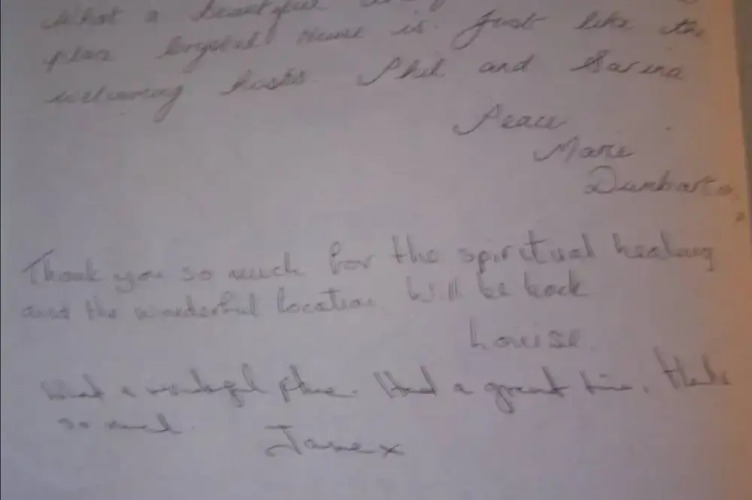 What a beautiful
place Crystal House is. Just like the
welcoming hosts. Phil and Sarina
Peace
Marie
Dumbarton
Thank you so much for the spiritual healing
and the wonderful location. Will be back
Louise.
What a wonderful place. Had a great time. Thanks
so much.
Jane x